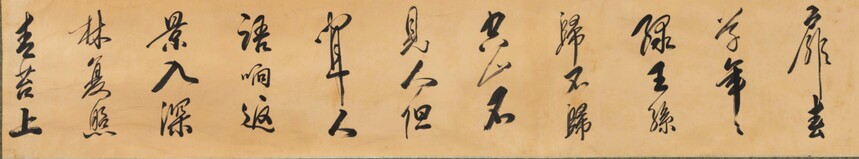 扉春
草年〻
綠王孫
歸不歸
空山不
見人但
聞人
語响返
景入深
林复照
青苔上